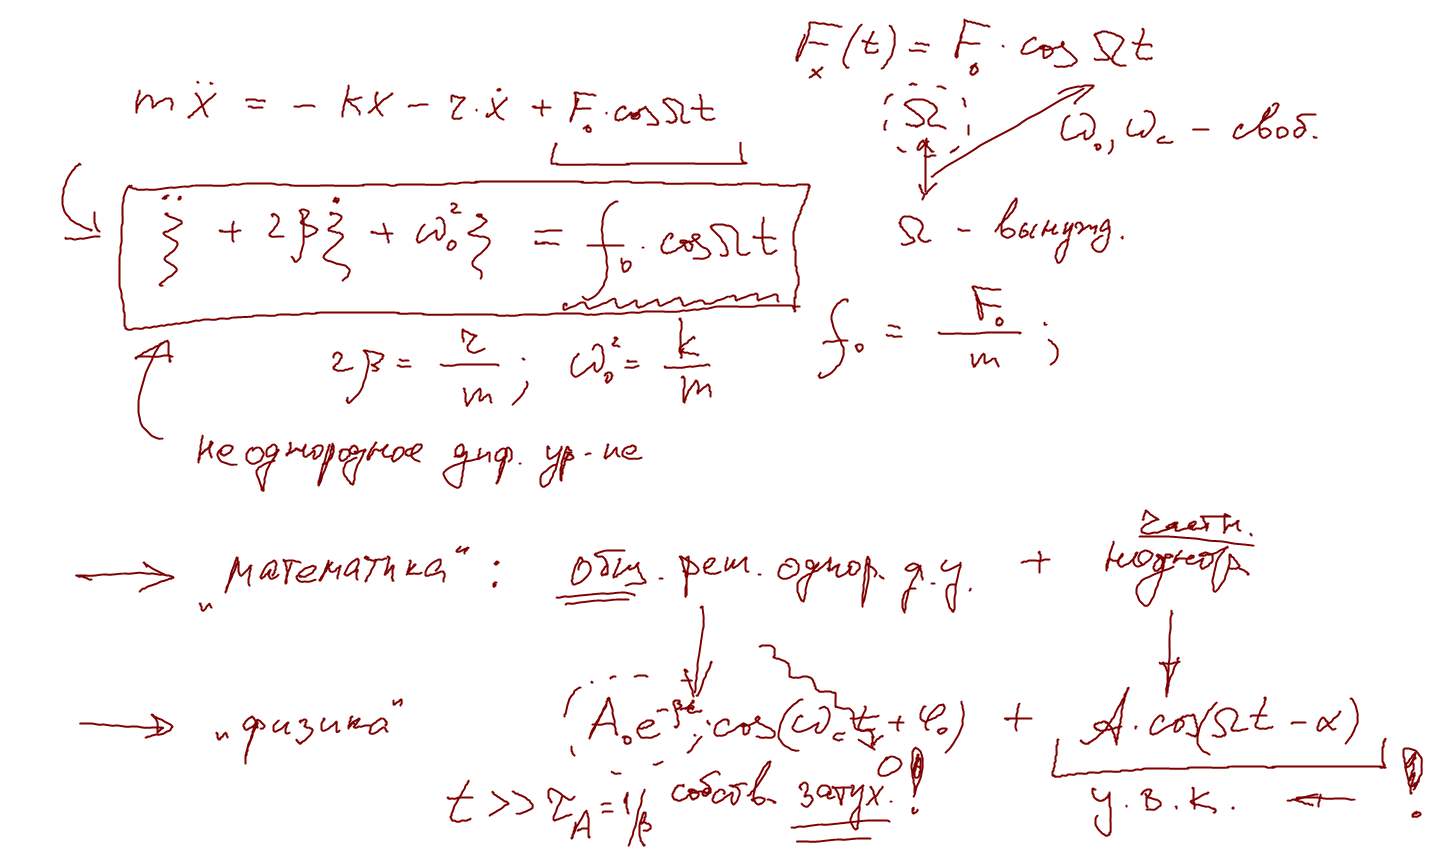 F_x(t) = F₀ · cos Ωt
mẍ = − kx − r·ẋ + F₀·cosΩt
Ω
ω₀, ω_c – своб.
Ω – вынужд.
ξ̈ + 2βξ̇ + ω₀²ξ = f₀ · cosΩt
2β = r/m ; ω₀² = k/m
f₀ = F₀/m ;
неоднородное диф. ур-ие
→ „математика“ : общ. реш. однор. д.у. + частн. неоднор.
→ „физика“ A₀e^{-βt} · cos(ω_c t + φ₀) + A·cos(Ωt − α)
t >> τ_A = 1/β собств. затух. 0! У.В.К. ← !